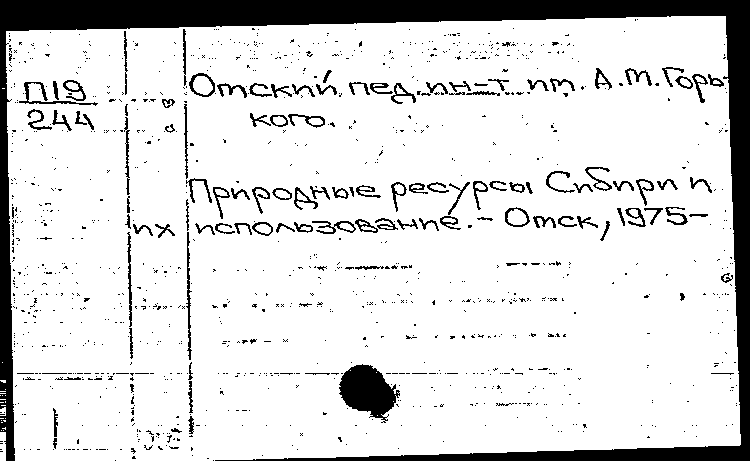 П19
244
Омский пед. ин-т им. А.М.Горь-
кого.
Природные ресурсы Сибири и
их использование. - Омск, 1975-